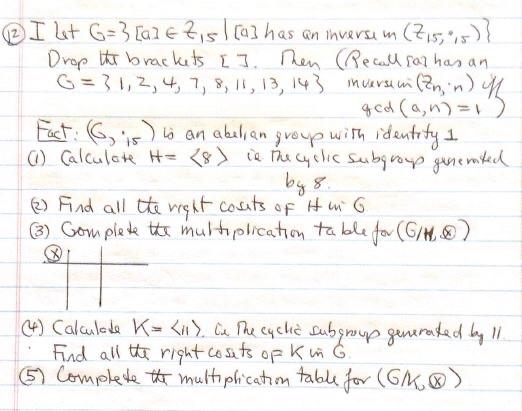 (12) I Let G = { [a] ∈ Z₁₅ | [a] has an inverse in (Z₁₅, ·₁₅)}
Drop the brackets [ ]. Then (Recall [a] has an
G = { 1, 2, 4, 7, 8, 11, 13, 14} inverse in (Zn, ·n) iff
gcd (a, n) = 1 )
Fact: (G, ·₁₅) is an abelian group with identity 1
(1) Calculate H = <8> ie the cyclic subgroup generated
by 8.
(2) Find all the right cosets of H in G
(3) Complete the multiplication table for (G/H, ⊗)
⊗
(4) Calculate K = <11>. ie The cyclic subgroup generated by 11.
Find all the right cosets of K in G.
(5) Complete the multiplication table for (G/K, ⊗)